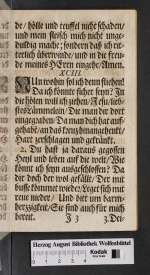 de/ hölle und teuffel nicht schaden/
und mein fleisch mich nicht unge-
duldig mache; sondern daß ich rit-
terlich überwinde/ und in die freu-
de meines HErrn eingehe/ Amen.
XCIII.
NUn wohin sol ich denn fliehen?
Da ich könnte sicher seyn? In
die höhlen wil ich ziehen/ JEsu/ lieb-
stes
die man der dort
eingegaben/ Da man dich hat auff-
gehabt/ an das kreutz hinangehenckt/
Hart geschlagen und gekränkt.
2. Du hast ja daraus gegossen
Heyl und leben auf die welt/ Wie
könnt ich seyn ausgeschlossen? Da
der doch der wol gefällt/ Der mit
busse kömmet wieder/ Leget sich mit
reue nieder/ Und bitt um barm-
hertzigkeit/ Sie sind auch für mich
bereit. J 3 3. Dei-
Herzog August Bibliothek Wolfenbüttel
Kodak